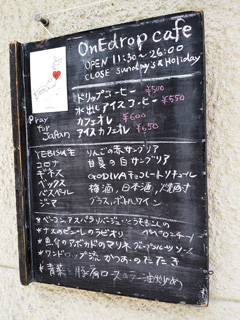 OnEdrop cafe
OPEN 11:30~26:00
CLOSE sundays & Holiday
Pray
for
Japan
ドリップコーヒー ¥500
水出しアイスコーヒー ¥550
カフェオレ ¥600
アイスカフェオレ ¥650
YEBISU生 りんごの赤サングリア
コロナ 甘夏の白サングリア
ギネス GODIVAチョコレートリキュール
ベックス 梅酒、日本酒、焼酎
バスペール グラス、ボトルワイン
ジーマ
*ベーコン アスパラ
*ナスのピューレのラビオリ
*魚介とアボカドのマリネ ソース
*ワンドロップ流 かつおのたたき
*青菜と豚肩ロースのラー油炒め